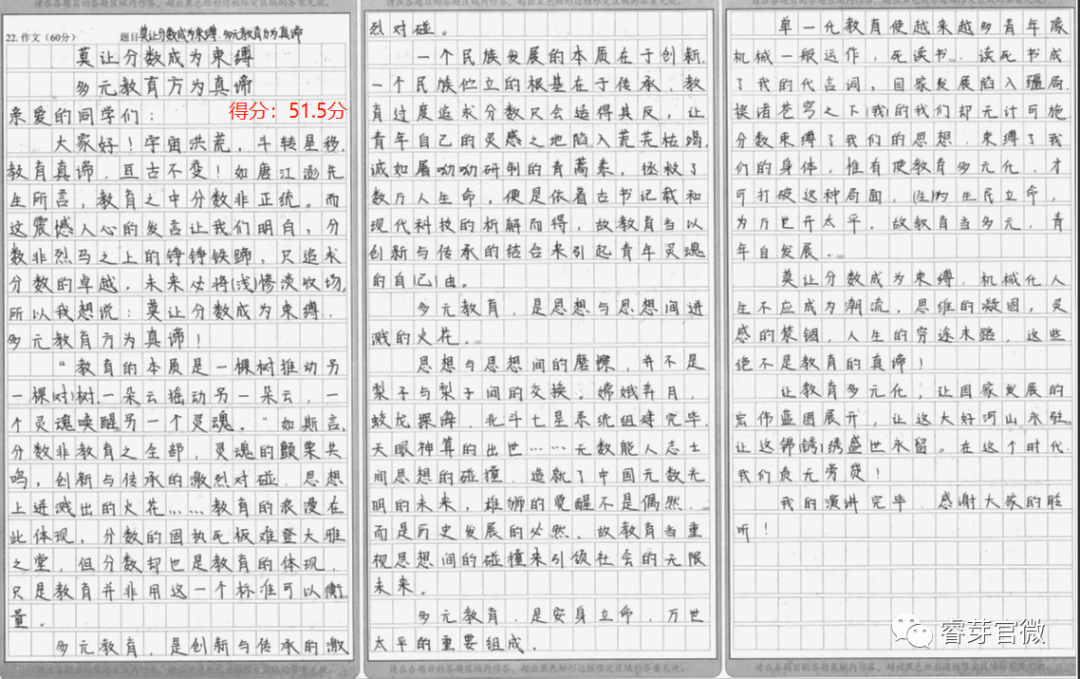 请在各题目的答题区域内作答，超出黑色矩形边框限定区域的答案无效。
22. 作文（60分）
题目莫让分数成为束缚，多元教育方为真谛
莫让分数成为束缚
多元教育方为真谛
得分：51.5分
亲爱的同学们：
大家好！宇宙洪荒，斗转星移，
教育真谛，亘古不变！如唐江澎先
生所言，教育之中分数非正统。而
这震憾人心的发言让我们明白，分
数非烈马之上的铮铮铁蹄，只追求
分数的卓越，未来必将(浅)惨淡收场，
所以我想说：莫让分数成为束缚，
多元教育方为真谛！
“教育的本质是一棵树推动另
一棵树，一朵云摇动另一朵云，一
个灵魂唤醒另一个灵魂。”如斯言，
分数非教育之全部，灵魂的颤栗共
鸣，创新与传承的激烈对碰，思想
上迸溅出的火花……教育的浪漫在
此体现，分数的固执死板难登大雅
之堂，但分数却也是教育的体现，
只是教育并非用这一个标准可以衡
量。
多元教育，是创新与传承的激
烈对碰。
一个民族发展的本质在于创新，
一个民族伫立的根基在于传承，教
育过度追求分数只会适得其反，让
青年自己的灵感之地陷入荒芜枯竭，
诚如屠呦呦研制的青蒿素，拯救了
数万人生命，便是依着古书记载和
现代科技的析解而得，故教育当以
创新与传承的结合来引起青年灵魂
的自由。
多元教育，是思想与思想间迸
溅的火花。
思想与思想间的磨擦，并不是
梨子与梨子间的交换；嫦娥奔月，
蛟龙探海，北斗七星系统组建完毕，
天眼神算的出世……无数能人志士
间思想的碰撞，造就了中国元数光
明的未来，雄狮的觉醒不是偶然，
而是历史发展的必然，故教育当重
视思想间的碰撞来引领社会的无限
未来。
多元教育，是安身立命，万世
太平的重要组成。
单一化教育使越来越多青年像
机械一般运作，死读书，读死书成
了我的代言词，国家发展陷入疆局，
揆诸苍穹之下(我)的我们却无计可施，
分数束缚了我们的思想，束缚了我
们的身体，惟有使教育多元化，才
可打破这种局面，为生民立命，
为万世开太平，故教育当多元，青
年自发展。
莫让分数成为束缚，机械化人
生不应成为潮流，思维的凝固，灵
感的禁锢，人生的穷途末路，这些
绝不是教育的真谛！
让教育多元化，让国家发展的
宏伟蓝图展开，让这大好河山永驻，
让这锦绣盛世永留。在这个时代，
我们责无旁贷！
我的演讲完毕，感谢大家的聆
听！
请在各题目的答题区域内作答，超出黑色矩形边框限定区域的答案无效。
睿芽官微